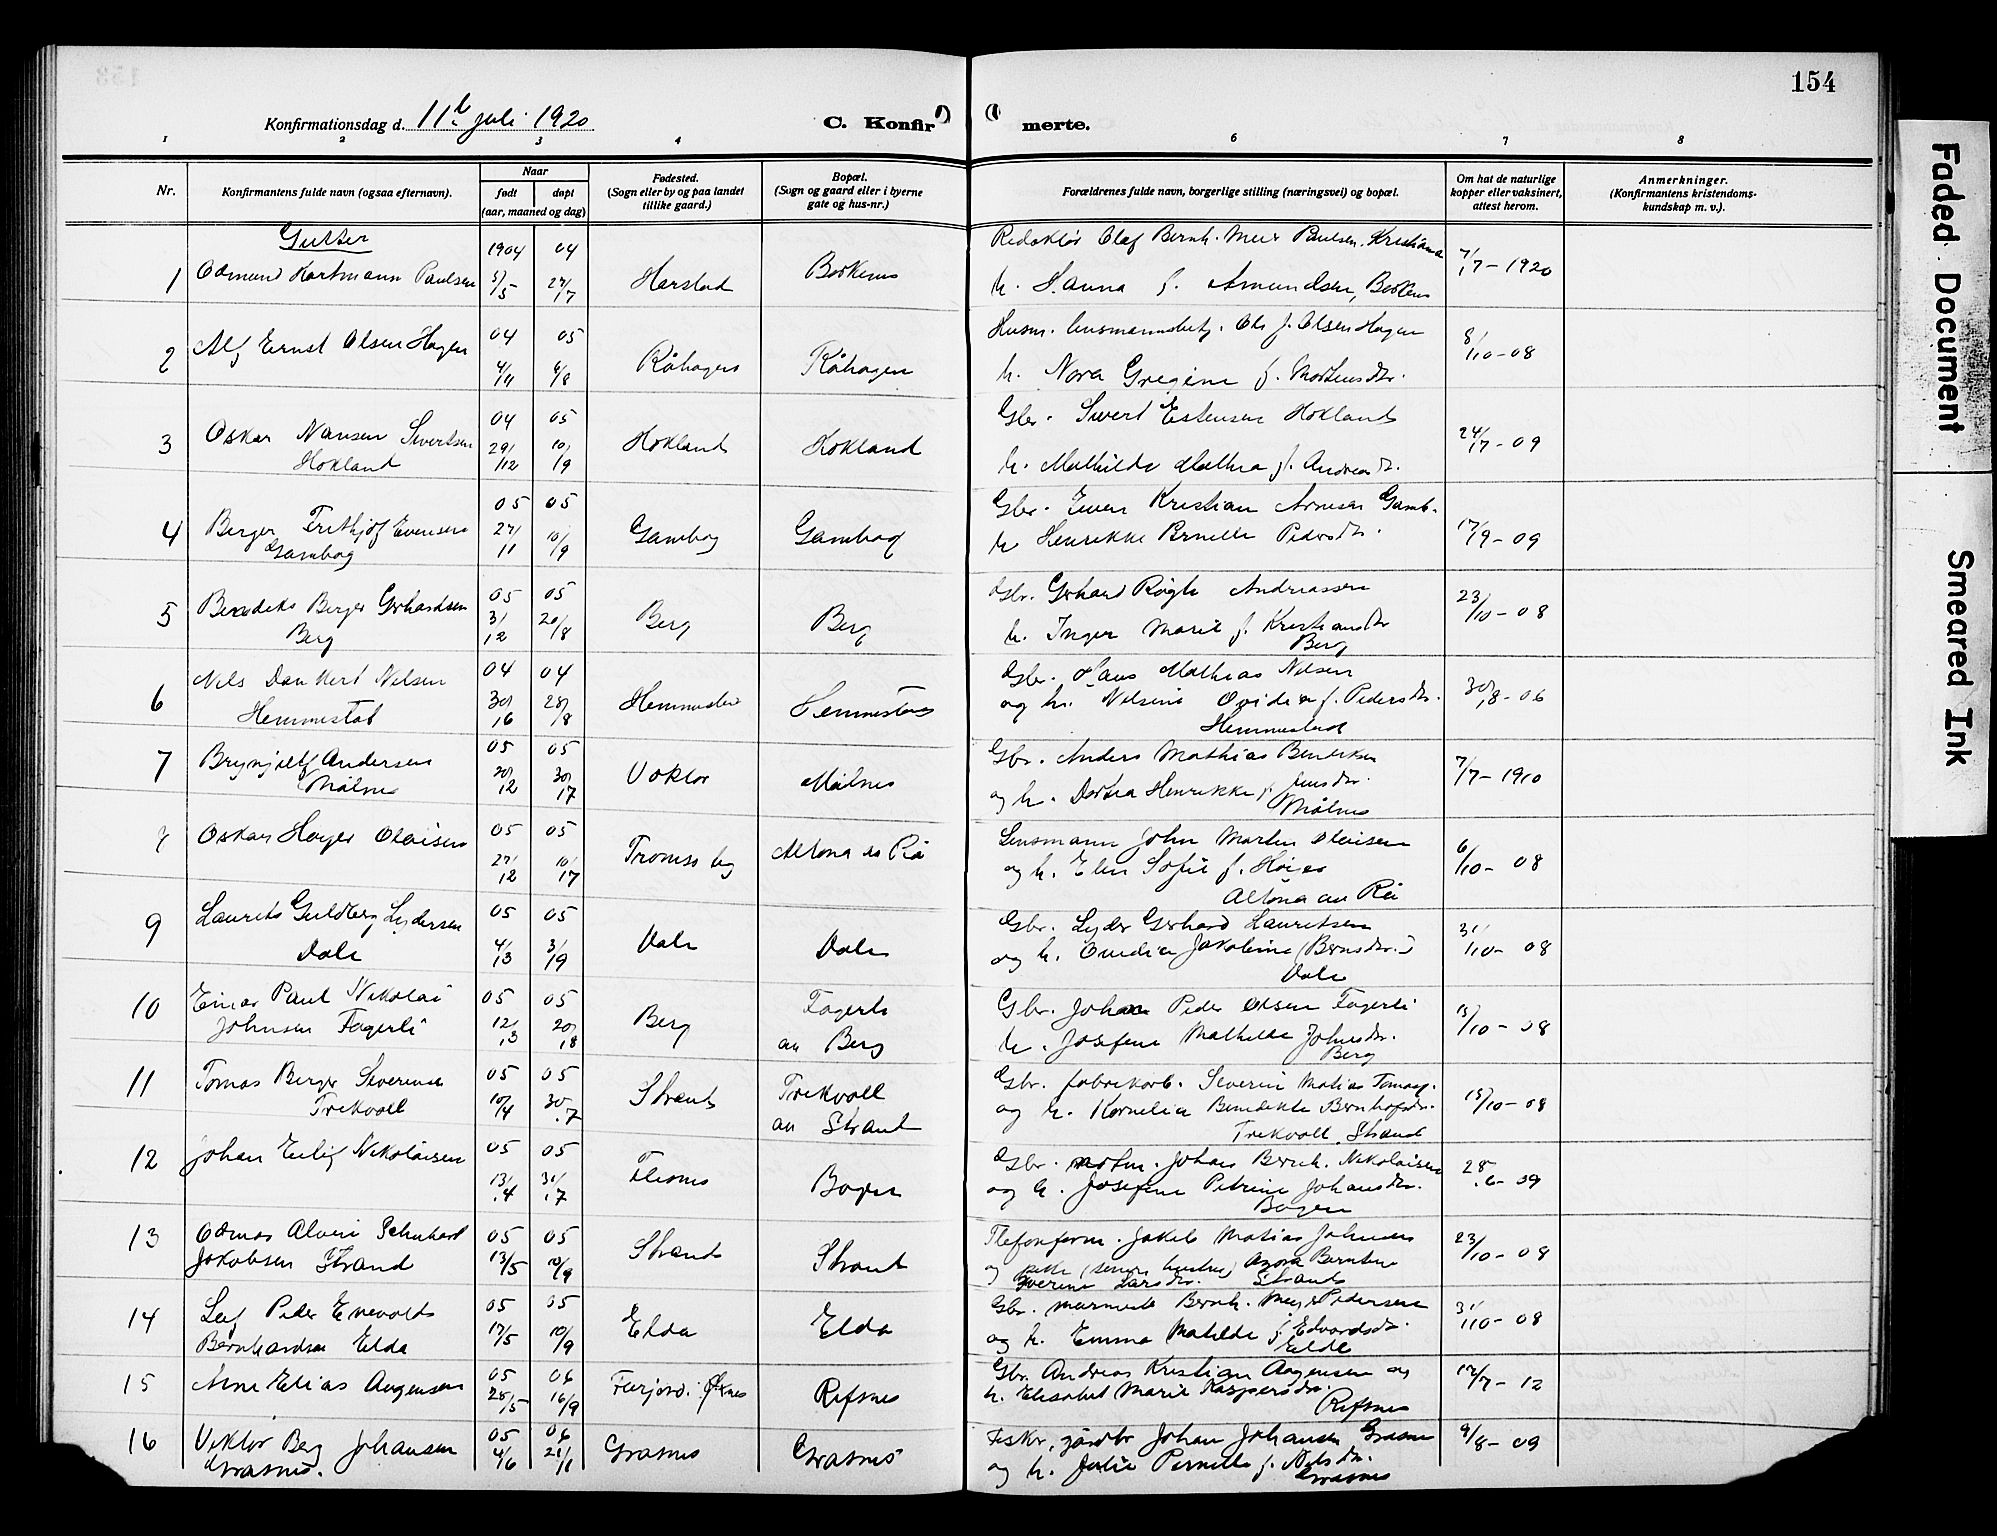 154
Konfirmationsdag d. 11te juli 1920
C. Konfir merte.
1 2 3 4 5 6 7 8
Nr.
Konfirmantens fulde navn (ogsaa efternavn).
Naar
født døpt
(aar, maaned og dag)
Fødested.
(Sogn eller by og paa landet
tillike gaard.)
Bopæl.
(Sogn og gaard eller i byerne
gate og hus-nr.)
Forældrenes fulde navn, borgerlige stilling (næringsvei) og bopæl.
Om hat de naturlige
kopper eller vaksinert,
attest herom.
Anmerkninger.
(Konfirmantens kristendoms-
kundskap m. v.).
Gutter
1904 04
Redaktør Olaf Bernh. Meier Paulsen, Kristiania
1 Odmund Hartmann Paulsen 5/5 24/7 Harstad Borkenes 7/7 - 1920
h. Hanna f. Amundsen, Borkenes
2 Alf Ernst Olsen Hagen 04 05
4/11 6/8 Råhagen Råhagen
Husm. lensmannsbetj. Ole J. Olsen Hagen
h. Nora Gregine f. Mortensdtr.
8/10 - 08
3 Oskar Nansen Sivertsen
Hokland
04 05
29/12 10/9 Hokland Hokland
Gbr. Sivert Estensen Hokland
h. Mathilde Mathea f. Andreasdtr.
24/7 - 09
4 Berger Frithjof Evensen
Gambog
05 05
27/1 10/9 Gambog Gambog
Gbr. Even Kristian Arnesen Gamb.
h. Henrikke Pernille Pedersdtr.
17/9 - 09
5 Benedikt Berger Gerhardsen
Berg
05 05
31/12 20/8 Berg Berg
Gbr. Gerhard Andreassen
h. Inger Marie f. Kristiansdtr
Berg
23/10 - 08
6 Nils Dankert Nilsen
Hemmestad
04 04
30/6 28/8 Hemmestad Hemmestad
Gbr. Hans Mathias Nilsen
og h. Nilsine Ovidia f. Pedersdtr.
Hemmestad
30/8 - 06
7 Brynjulf Andersen
Målnes
05 05
20/12 30/7 Voktor Målnes
Gbr. Anders Mathias Bendiksen
og h. Dortea Henrikke f. Jensdtr.
Målnes
7/7 - 1910
8 Oskar Høyer Olaisen
05 05
27/12 10/7 Tromsø by Altona av Rå
Lensmann John Martin Olaisen
og h. Elen Sofie f. Høier
Altona av Rå
6/10 - 08
9 Laurits Guldberg Lydersen
Dale
05 05
4/3 3/9 Dale Dale
Gbr. Lyder Gerhard Lauritsen
og h. Emelia Jakobine (Berns dtr.)
Dale
31/10 - 08
10 Einar Paul Nikolai
Johnsen Fagerli
05 05
12/3 20/8 Berg Fagerli
av Berg
Gbr. Johan Peder Olsen Fagerli
h. Josefine Mathilde Johnsdtr.
Berg
15/10 - 08
11 Tomas Berger Severinsen
Trekvoll
05 05
10/4 30/7 Strand Trekvoll
av Strand
Gbr. fabrikarb. Severin Matias Tomass.
og h. Kornelia Benedikte Bernhofsdtr.
Trekvoll, Strand
15/10 - 08
12 Johan Eilif Nikolaisen
05 05
13/4 31/7 Flesnes Bogen
Gbr. Johan Bernh. Nikolaisen
og h. Josefine Petrine Johansdtr.
Bogen
28/6 - 09
13 Odmar Alvin Schuhart
Jakobsen Strand
05 05
13/5 10/9 Strand Strand
Jakob Matias Johnsen
og Anna Berntine
Severine Larsdtr. Strand
23/10 - 08
14 Leif Peder Enevolds
Bernhardsen Elda
05 05
17/5 10/9 Elda Elda
Gbr. Bernh. Meyer Pedersen
og h. Emma Matilde f. Edvardsdtr.
Elde
31/10 - 08
15 Arne Elias Aagensen
05 06
28/5 16/9 Rifsnes
Gbr. Andreas Kristian Aagensen og
h. Elisabet Marie Kaspersdtr.
Rifsnes
12/7 - 12
16 Viktor Berg Johansen
Grasnes.
05 06
4/6 21/1 Grasnes Grasnes
Fisker, gårdbr Johan Johansen Grasnes
og h. Julie Pernille f. Nilsdtr.
Grasnes
9/8 - 09
Faded Document
Smeared Ink